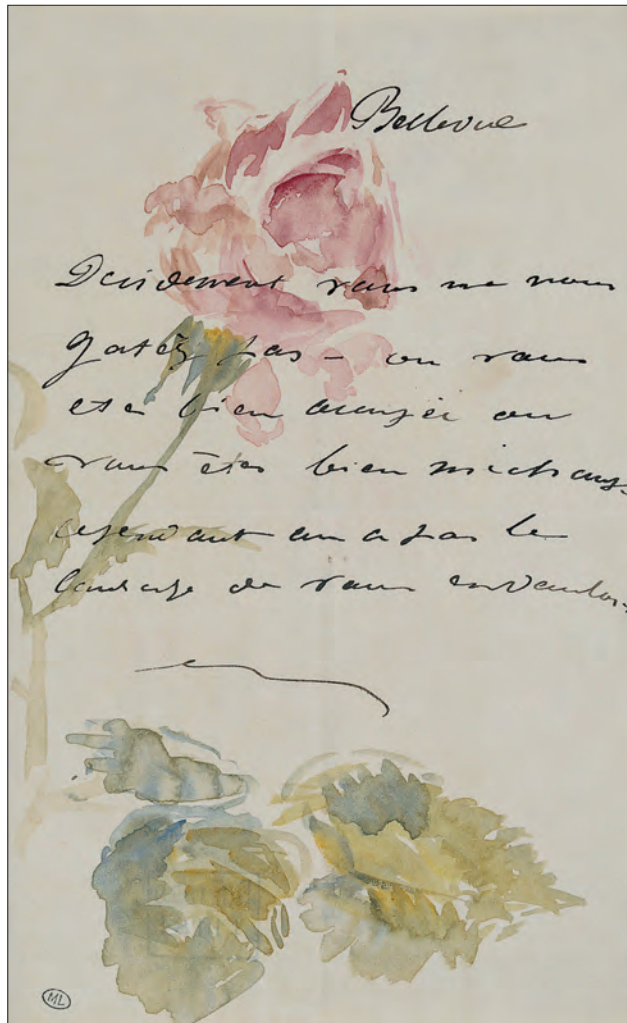 Bellevue
Decidement vous ne nous
gatéz pas - ou vous
etes bien occupée ou
vous êtes bien mechante
cependant on a pas le
courage de vous en vouloir
ML